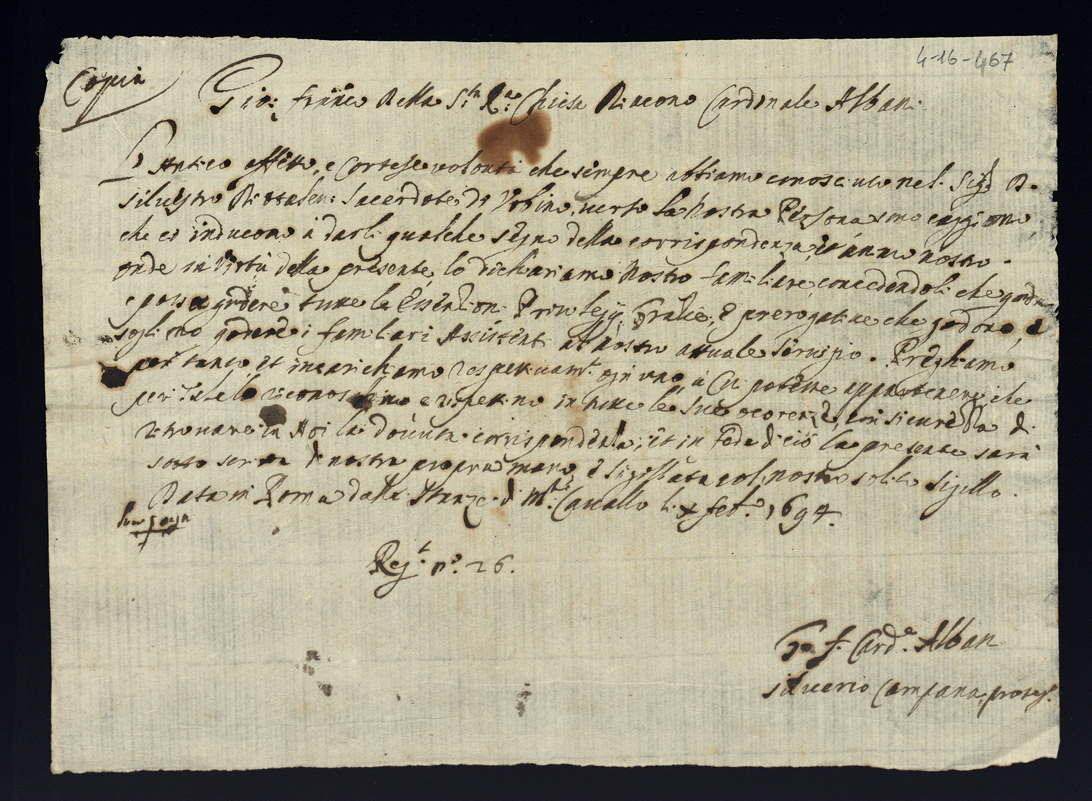 4-16-467
Copia
Gio: Franco Della S.ta R.a Chiesa Diacono Cardinale Albani
L'Antico affetto, e cortese volontà che sempre abbiamo conosciuto nel Sig.r D.
Silvestro sacerdote di Urbino, verso la Nostra Persona sono caggione
che ci inducono à darli qualche segno della corrispondenza dell'animo nostro.
onde in virtù della presente lo dichiariamo Nostro familiare, concedendoli che goda
e possa godere tutte le Essentioni Privilegij, Gratie, e prerogative che godono, e
sogliono godere i familiari Assistenti al nostro attuale servizio. Preghiamo
per tanto et incarichiamo respettivam.te ogn'uno à cui potesse appartenere che
per Tale lo riconoschino e rispettino in tutte le sue occorenze, con sicurezza di
ritrovare in Noi la dovuta corrispondenza, et in fede di ciò la presente sarà
sotto scritta di nostra propria mano, e sigillata col nostro solito sigillo.
Data in Roma dalle Stanze di M.te Cavallo li X Feb.o 1694.
Reg.t n.o 26.
Gio. F. Card.e Albani
Silverio Campana, proseg.